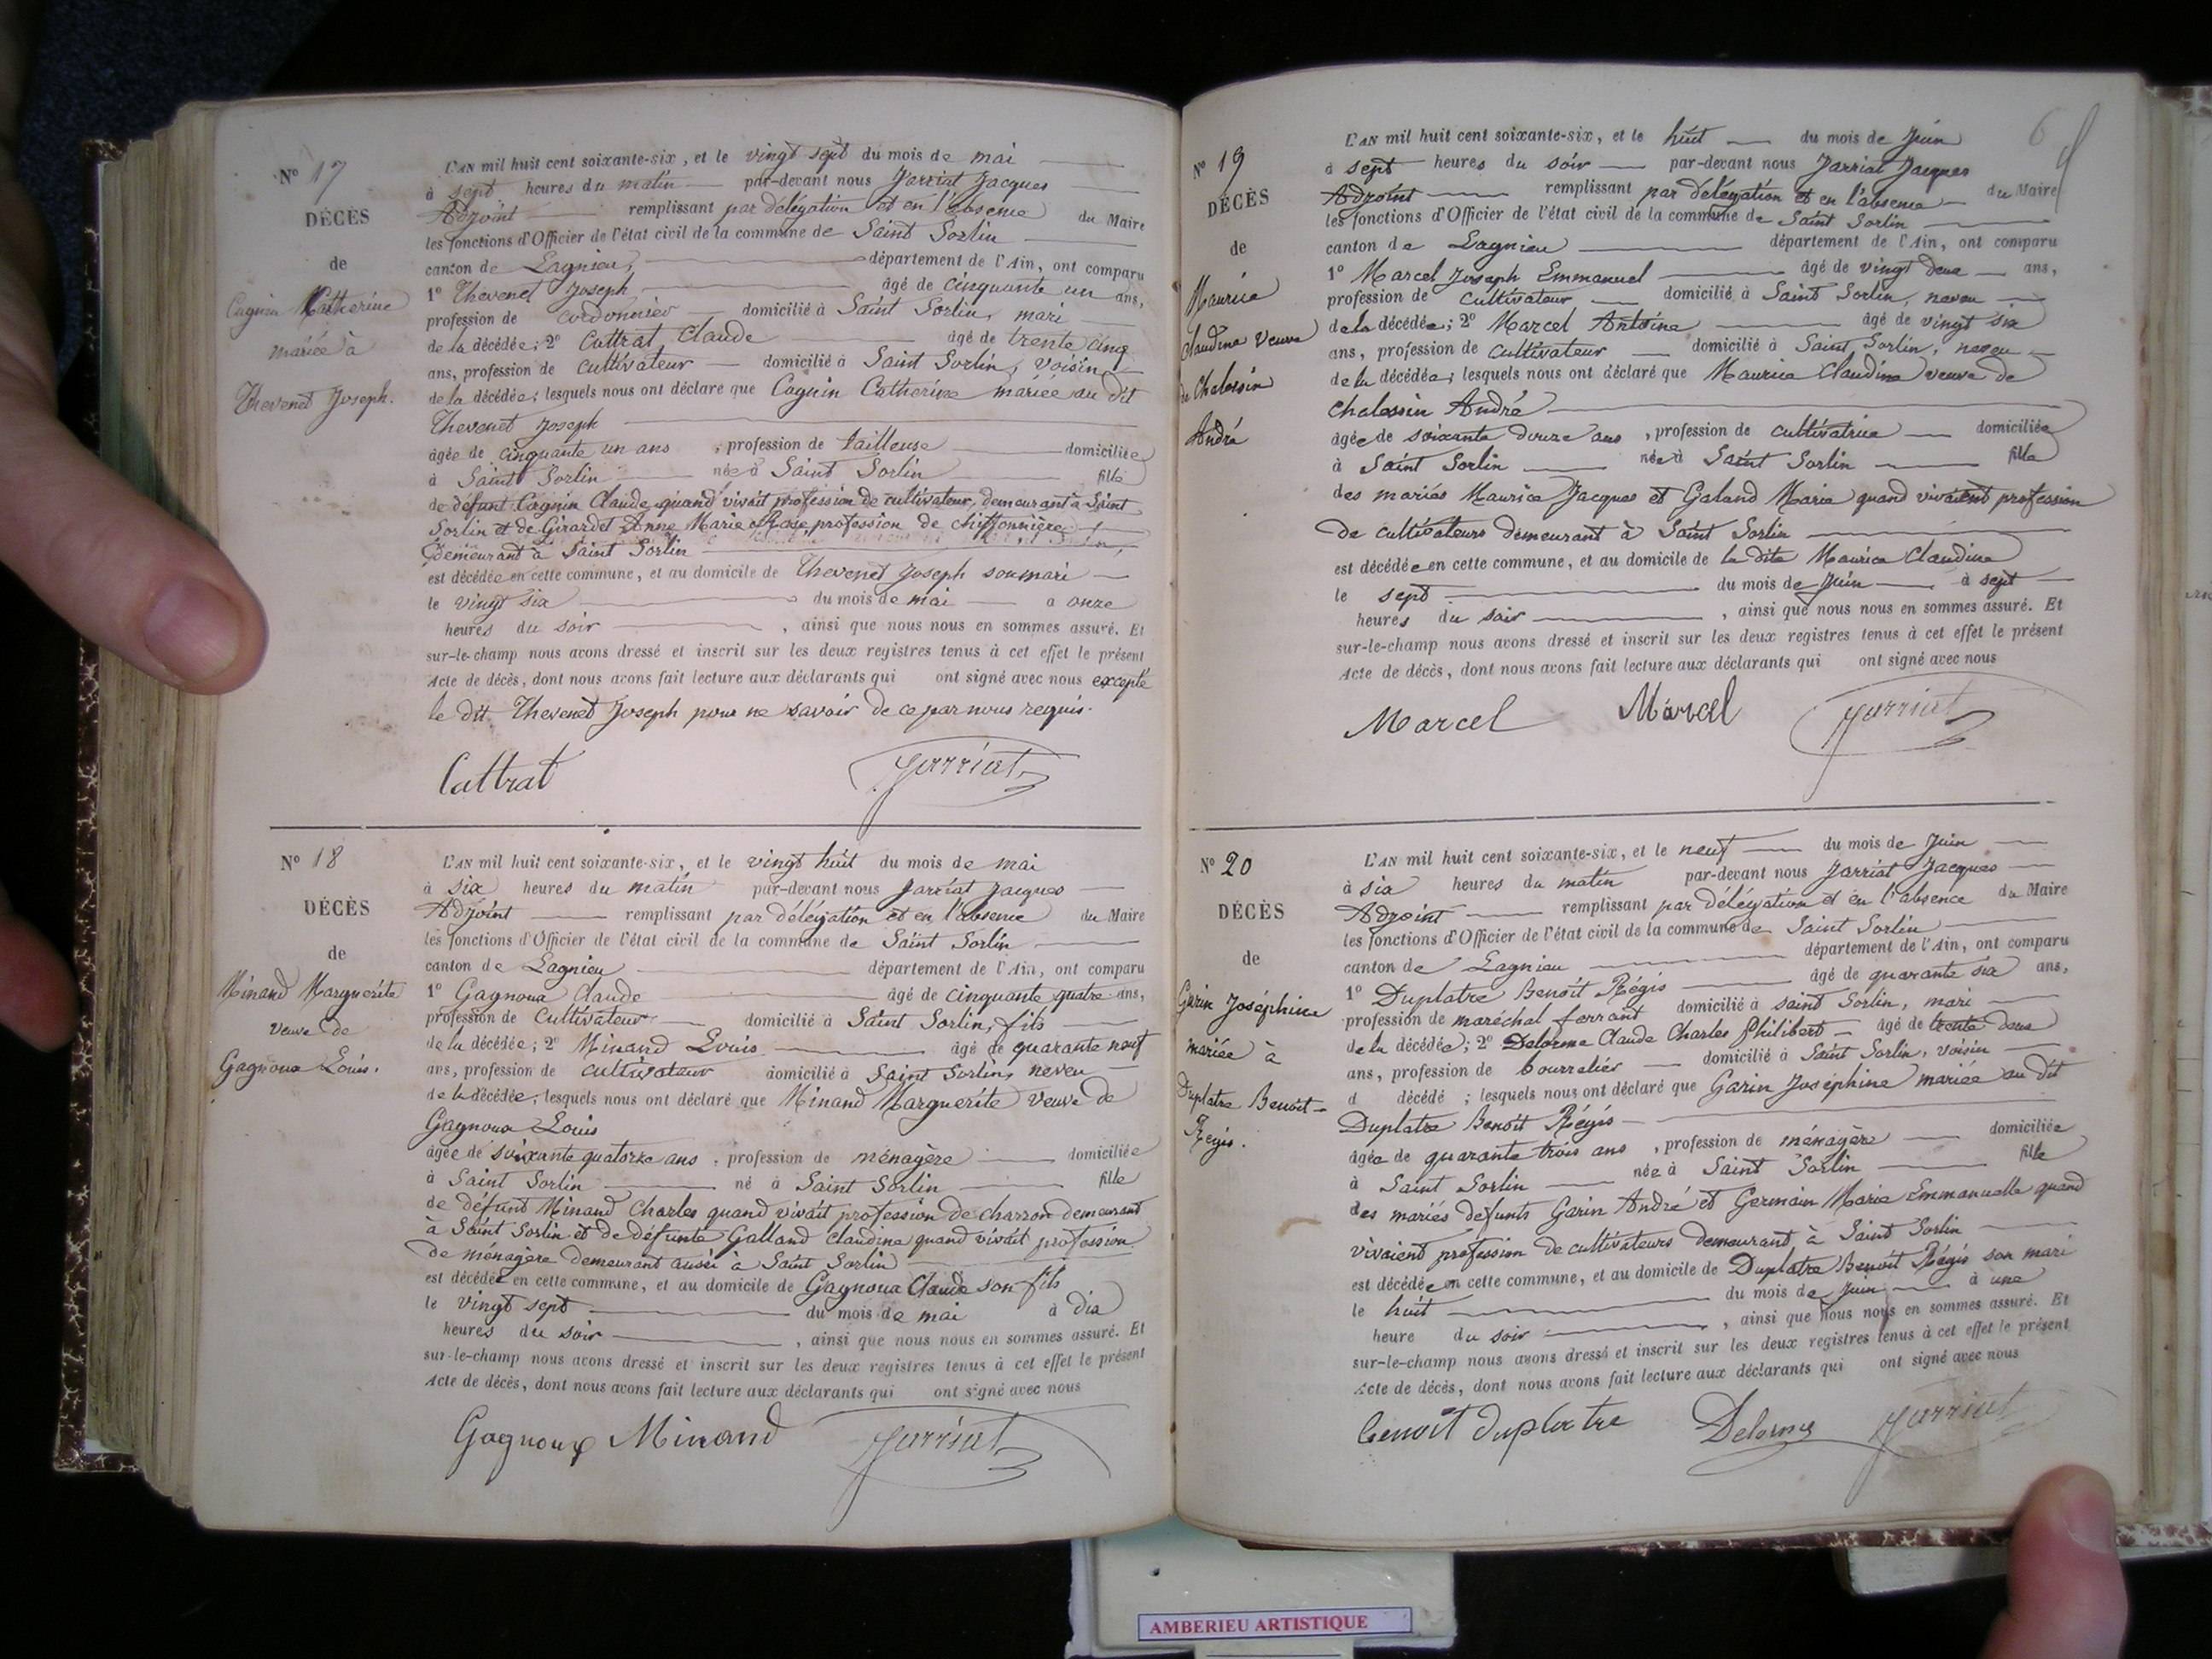 N° 17
DÉCÈS
de
Cagnin Catherine
mariée à
Thevenet Joseph.
L'AN mil huit cent soixante-six, et le vingt sept du mois de mai
à sept heures du matin par-devant nous Jarriat Jacques
Adjoint remplissant par délégation et en l'absence du Maire
les fonctions d'Officier de l'état civil de la commune de Saint Sorlin
canton de Lagnieu, département de l'Ain, ont comparu
1° Thevenet Joseph âgé de cinquante un ans,
profession de cordonnier domicilié à Saint Sorlin, mari
de la décédée; 2° Cattrat Claude âgé de trente cinq
ans, profession de cultivateur domicilié à Saint Sorlin, voisin
de la décédée; lesquels nous ont déclaré que Cagnin Catherine mariée au dit
Thevenet Joseph
âgée de cinquante un ans, profession de tailleuse domiciliée
à Saint Sorlin née à Saint Sorlin fille
de défunt Cagnin Claude quand vivait profession de cultivateur, demeurant à Saint
Sorlin et de Girardet Anne Marie Rose profession de chiffonnière
demeurant à Saint Sorlin
est décédée en cette commune, et au domicile de Thevenet Joseph son mari
le vingt six du mois de mai à onze
heures du soir, ainsi que nous nous en sommes assuré. Et
sur-le-champ nous avons dressé et inscrit sur les deux registres tenus à cet effet le présent
Acte de décès, dont nous avons fait lecture aux déclarants qui ont signé avec nous excepté
le dit Thevenet Joseph pour ne savoir de ce par nous requis.
Cattrat Jarriat
N° 18
DÉCÈS
de
Minand Marguerite
veuve de
Gagnoux Louis.
L'AN mil huit cent soixante-six, et le vingt huit du mois de mai
à six heures du matin par-devant nous Jarriat Jacques
Adjoint remplissant par délégation et en l'absence du Maire
les fonctions d'Officier de l'état civil de la commune de Saint Sorlin
canton de Lagnieu département de l'Ain, ont comparu
1° Gagnoux Claude âgé de cinquante quatre ans,
profession de cultivateur domicilié à Saint Sorlin, fils
de la décédée; 2° Minand Louis âgé de quarante neuf
ans, profession de cultivateur domicilié à Saint Sorlin, neveu
de la décédée, lesquels nous ont déclaré que Minand Marguerite veuve de
Gagnoux Louis
âgée de soixante quatorze ans, profession de ménagère domiciliée
à Saint Sorlin né à Saint Sorlin fille
de défunt Minand Charles quand vivait profession de charron demeurant
à Saint Sorlin et de défunte Galland Claudine quand vivait profession
de ménagère demeurant aussi à Saint Sorlin
est décédée en cette commune, et au domicile de Gagnoux Claude son fils
le vingt sept du mois de mai à dix
heures du soir, ainsi que nous nous en sommes assuré. Et
sur-le-champ nous avons dressé et inscrit sur les deux registres tenus à cet effet le présent
Acte de décès, dont nous avons fait lecture aux déclarants qui ont signé avec nous
Gagnoux Minand Jarriat
6
N° 19
DÉCÈS
de
Maurice
Claudine veuve
de Chalessin
André
L'AN mil huit cent soixante-six, et le huit du mois de Juin
à sept heures du soir par-devant nous Jarriat Jacques
Adjoint remplissant par délégation et en l'absence du Maire
les fonctions d'Officier de l'état civil de la commune de Saint Sorlin
canton de Lagnieu département de l'Ain, ont comparu
1° Marcel Joseph Emmanuel âgé de vingt deux ans,
profession de cultivateur domicilié à Saint Sorlin, neveu
de la décédée; 2° Marcel Antoine âgé de vingt six
ans, profession de cultivateur domicilié à Saint Sorlin, neveu
de la décédée; lesquels nous ont déclaré que Maurice Claudine veuve de
Chalessin André
âgée de soixante douze ans, profession de cultivatrice domiciliée
à Saint Sorlin née à Saint Sorlin fille
des mariés Maurice Jacques et Galand Marie quand vivaient profession
de cultivateurs demeurant à Saint Sorlin
est décédée en cette commune, et au domicile de la dite Maurice Claudine
le sept du mois de Juin à sept
heures du soir, ainsi que nous nous en sommes assuré. Et
sur-le-champ nous avons dressé et inscrit sur les deux registres tenus à cet effet le présent
Acte de décès, dont nous avons fait lecture aux déclarants qui ont signé avec nous
Marcel Marcel Jarriat
N° 20
DÉCÈS
de
Garin Joséphine
mariée à
Duplatre Benoit-
Régis.
L'AN mil huit cent soixante-six, et le neuf du mois de Juin
à six heures du matin par-devant nous Jarriat Jacques
Adjoint remplissant par délégation et en l'absence du Maire
les fonctions d'Officier de l'état civil de la commune de Saint Sorlin
canton de Lagnieu département de l'Ain, ont comparu
1° Duplatre Benoît Régis âgé de quarante six ans,
profession de maréchal ferrant domicilié à saint Sorlin, mari
de la décédée; 2° Delorme Claude Charles Philibert âgé de trente deux
ans, profession de bourrelier domicilié à Saint Sorlin, voisin
d décédé; lesquels nous ont déclaré que Garin Joséphine mariée au dit
Duplatre Benoît Régis
âgée de quarante trois ans, profession de ménagère domiciliée
à Saint Sorlin née à Saint Sorlin fille
des mariés défunts Garin André et Germain Marie Emmanuelle quand
vivaient profession de cultivateurs demeurant à Saint Sorlin
est décédée en cette commune, et au domicile de Duplatre Benoit Régis son mari
le huit du mois de Juin à une
heure du soir, ainsi que nous nous en sommes assuré. Et
sur-le-champ nous avons dressé et inscrit sur les deux registres tenus à cet effet le présent
Acte de décès, dont nous avons fait lecture aux déclarants qui ont signé avec nous
Benoit Duplatre Delorme Jarriat
AMBERIEU ARTISTIQUE